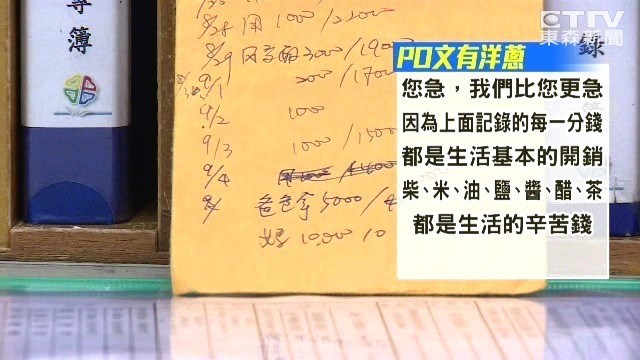 ETTV
東森新聞
簿
錄
8/28 用 1000/22000
8/29 3000/1900
9/1 2000/1700
9/2 1000
9/3 1000/1500
9/4
爸爸拿 5000/4
10,000/0
PO文有洋蔥
您急，我們比您更急
因為上面記錄的每一分錢
都是生活基本的開銷
柴、米、油、鹽、醬、醋、茶
都是生活的辛苦錢